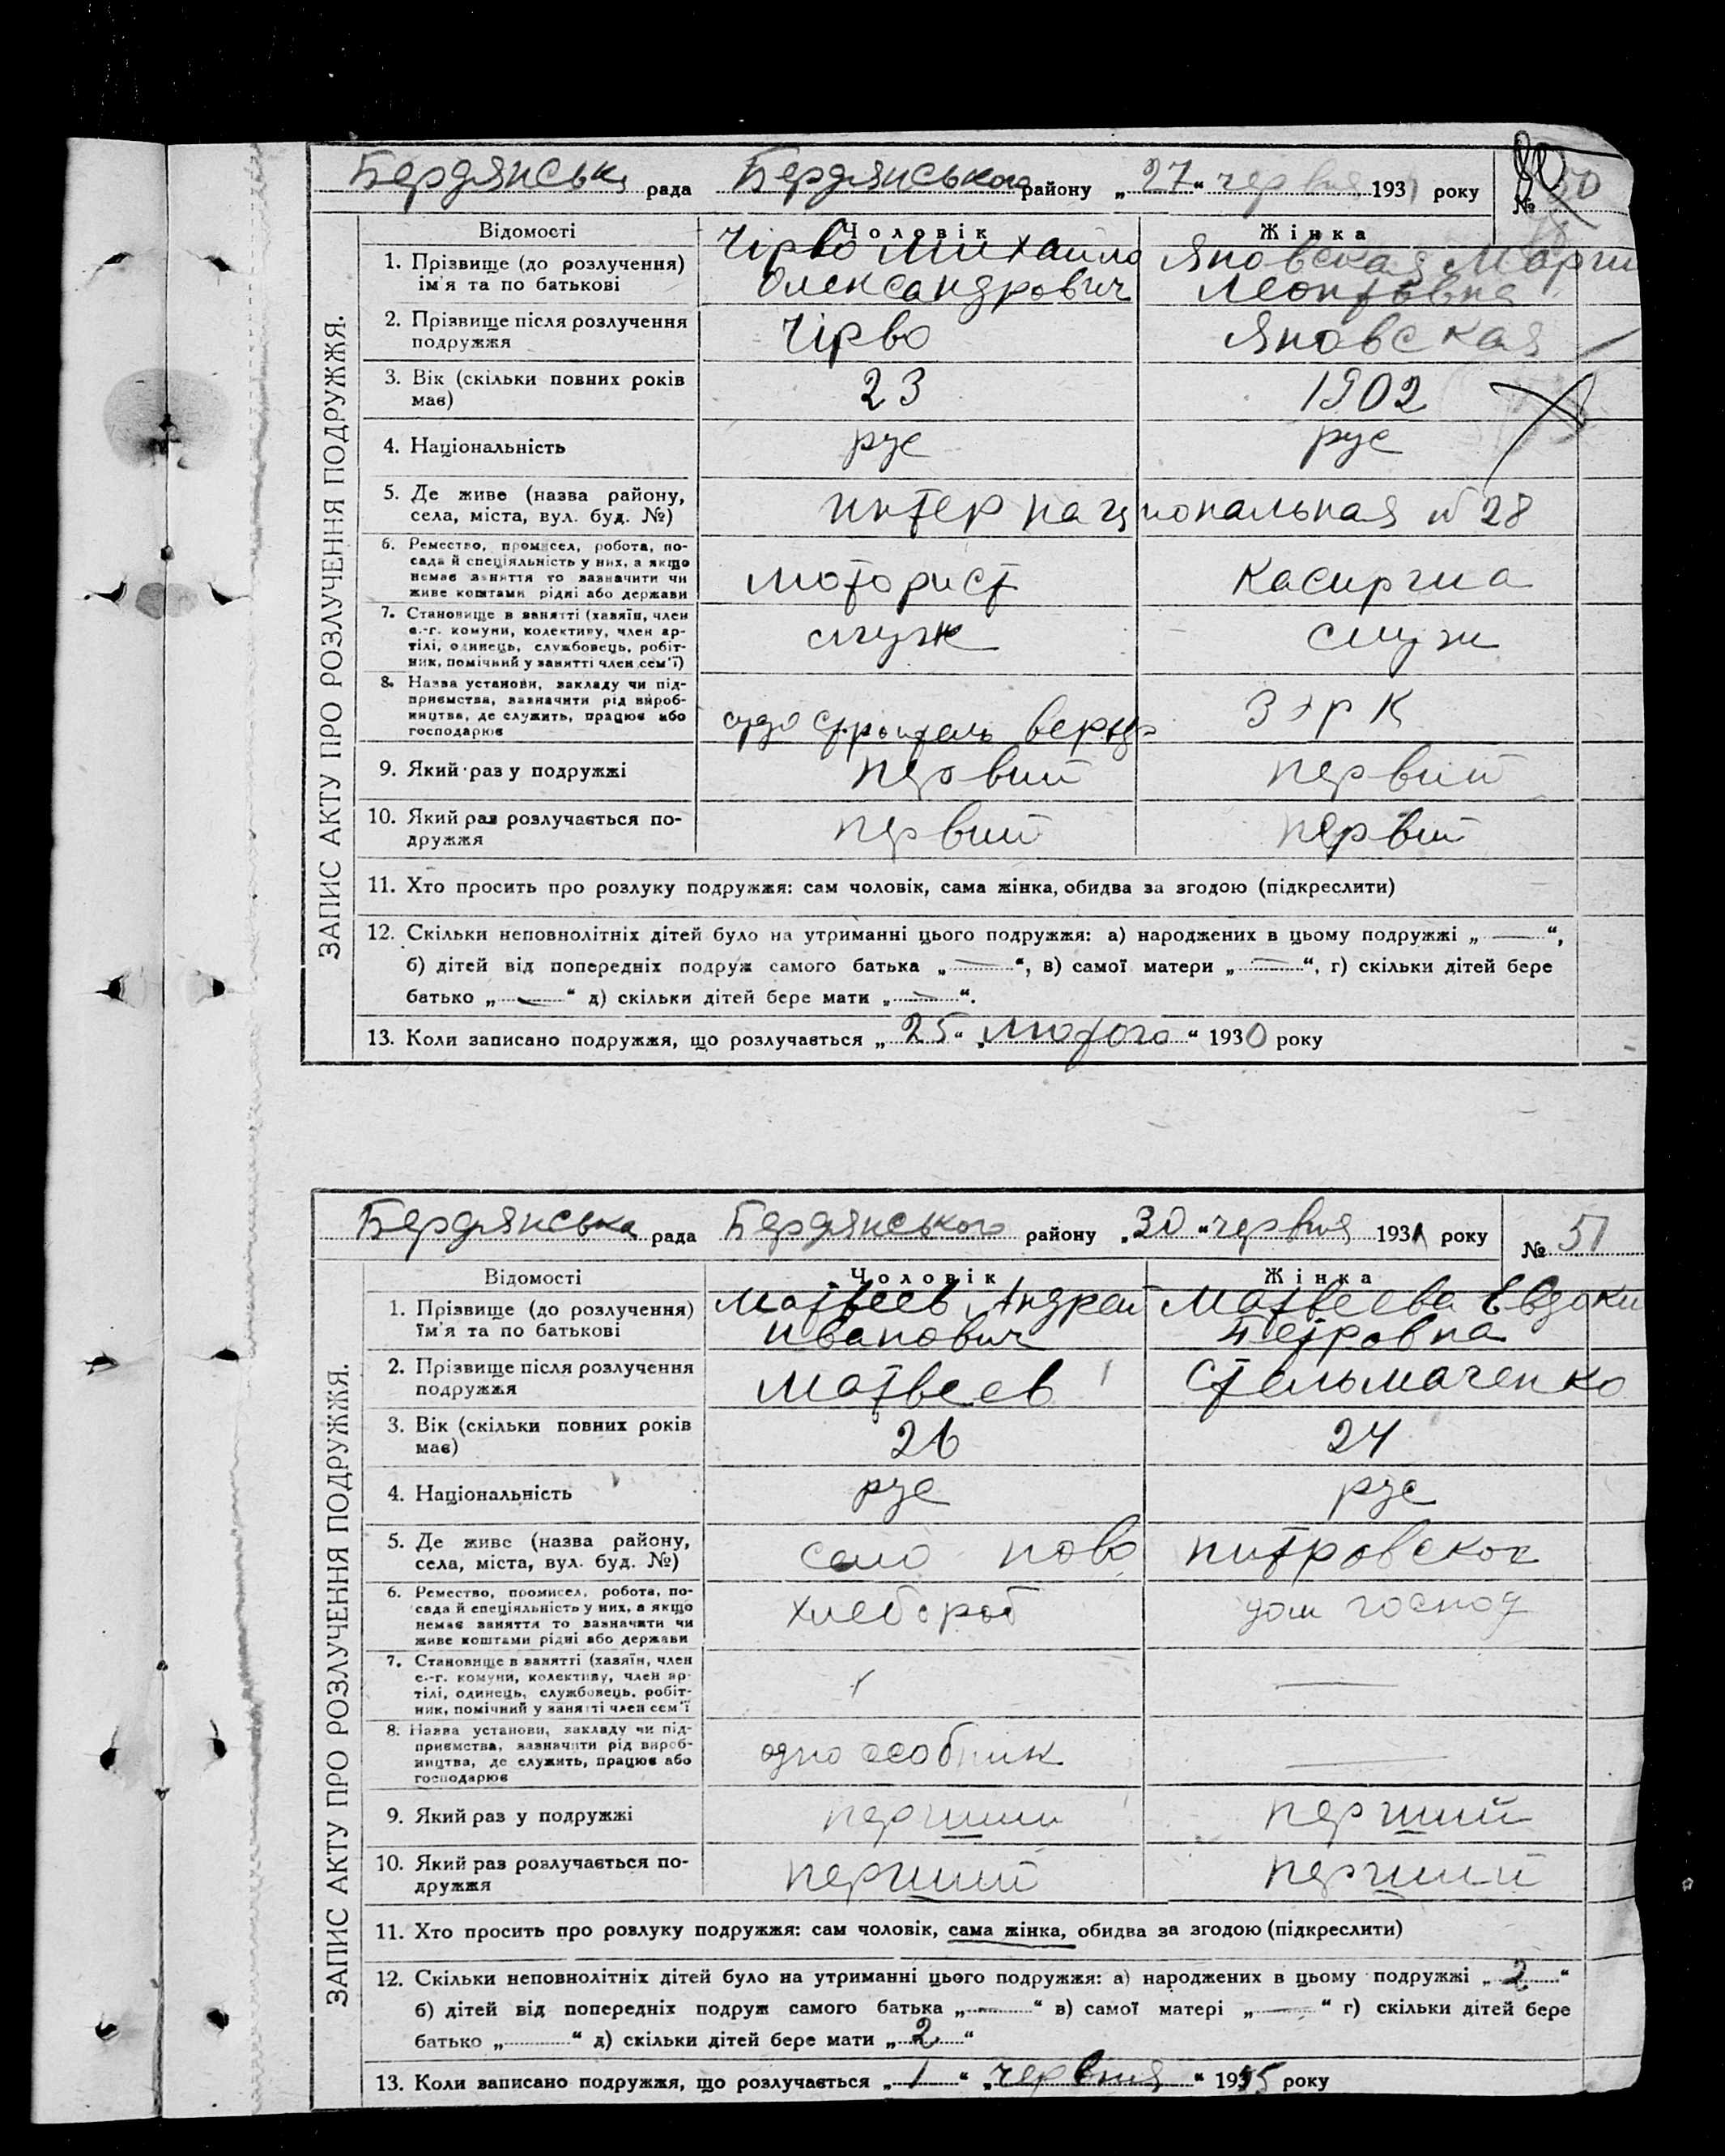 Бердянська рада Бердянського району „27“ червня 1931 року № 50
ЗАПИС АКТУ ПРО РОЗЛУЧЕННЯ ПОДРУЖЖЯ.
Відомості Чоловік Жінка
1. Прізвище (до розлучення) Чірво Михайло Яновская Мари
ім'я та по батькові Олександрович Леонтьвна
2. Прізвище після розлучення Чірво Яновская
подружжя
3. Вік (скільки повних років 23 1902
має)
4. Національність рус рус
5. Де живе (назва району,
села, міста, вул. буд. №) интернациональная № 28
6. Ремество, промисел, робота, по-
сада й спеціяльність у них, а якщо
немає заняття то зазначити чи моторист касирша
живе коштами рідні або держави
7. Становище в занятті (хазяїн, член
с.-г. комуни, колективу, член ар- служ служ
тілі, одинець, службовець, робіт-
ник, помічний у занятті член сем'ї)
8. Назва установи, закладу чи під-
приємства, зазначити рід вироб- ЗрК
ництва, де служить, працює або судо строитель верф
господарює
9. Який раз у подружжі первий первий
10. Який раз розлучається по- первий первий
дружжя
11. Хто просить про розлуку подружжя: сам чоловік, сама жінка, обидва за згодою (підкреслити)
12. Скільки неповнолітніх дітей було на утриманні цього подружжя: а) народжених в цьому подружжі „ — “,
б) дітей від попередніх подруж самого батька „ — “, в) самої матери „ — “, г) скільки дітей бере
батько „ — “ д) скільки дітей бере мати „ — “.
13. Коли записано подружжя, що розлучається „25“ „Лютого“ 1930 року
Бердянська рада Бердянського району „30“ червня 1931 року № 51
ЗАПИС АКТУ ПРО РОЗЛУЧЕННЯ ПОДРУЖЖЯ.
Відомості Чоловік Жінка
1. Прізвище (до розлучення) Матвеев Андрей Матвеева Евдоки
їм'я та по батькові Иванович Петровна
2. Прізвище після розлучення Матвеев Стельмаченко
подружжя
3. Вік (скільки повних років 26 24
має)
4. Національність рус рус
5. Де живе (назва району,
села, міста, вул. буд. №) село ново питровское
6. Ремество, промисел, робота, по-
сада й спеціяльність у них, а якщо хлебороб дом господ
немає заняття то зазначити чи
живе коштами рідні або держави
7. Становище в занятті (хазяїн, член
с.-г. комуни, колективу, член ар- —
тілі, одинець, службовець, робіт-
ник, помічний у занятті член сем'ї
8. Назва установи, закладу чи під-
приємства, зазначити рід вироб- одноособник —
ництва, де служить, працює або
господарює
9. Який раз у подружжі перший перший
10. Який раз розлучається по- перший перший
дружжя
11. Хто просить про розлуку подружжя: сам чоловік, сама жінка, обидва за згодою (підкреслити)
12. Скільки неповнолітніх дітей було на утриманні цього подружжя: а) народжених в цьому подружжі „ 2 “
б) дітей від попередніх подруж самого батька „ — “ в) самої матері „ — “ г) скільки дітей бере
батько „ “ д) скільки дітей бере мати „ 2 “
13. Коли записано подружжя, що розлучається „ 1 “ „червня“ 1925 року